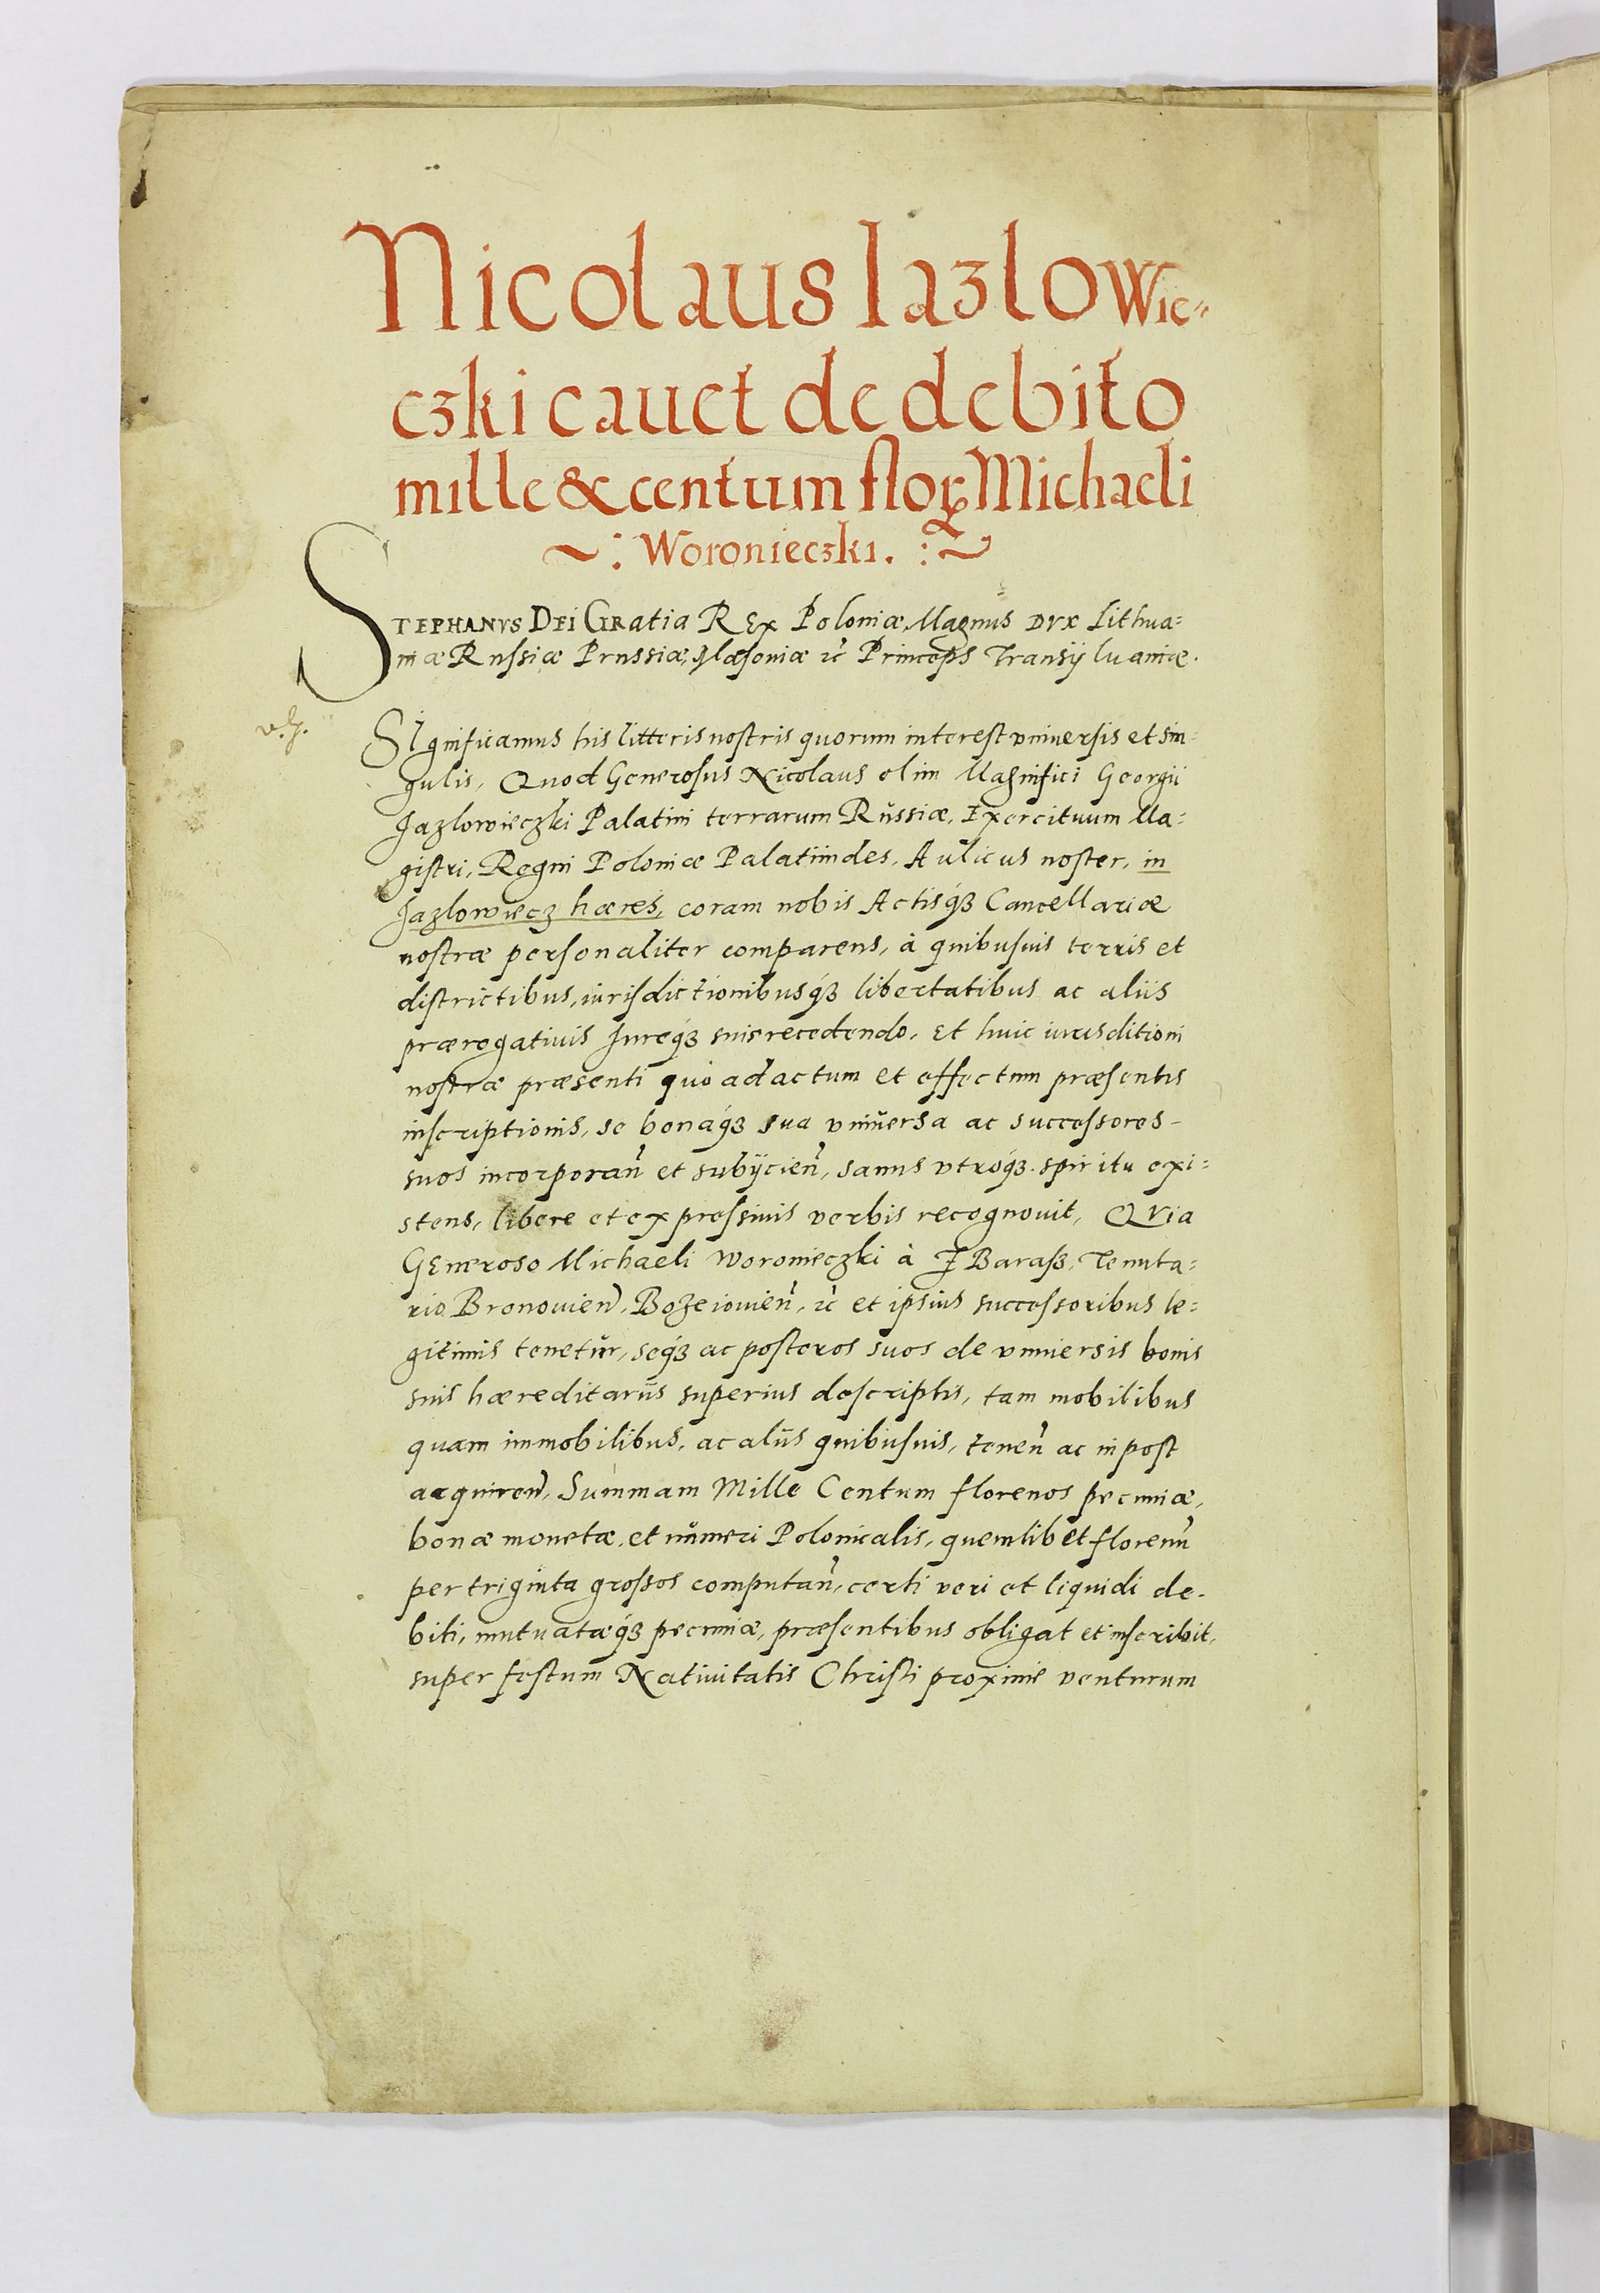 Nicolaus Iazlowie=
czki cauet de debito
mille & centum floꝝ Michaeli
~ : Woronieczki. : ~
STEPHANVS DEI GRatia REx Poloniæ, Magnus DVX Lithua=
niæ Russiæ Prussiæ, Masouiæ ꝛc̃ Princeps Transijluaniæ.
SIgnificamus his litteris nostris quorum interest vniuersis et sin=
gulis, Quod Generosus Nicolaus olim Magnifici Georgii
Jazlowieczki Palatini terrarum Rŭssiæ, Exercituum Ma=
gistri, Regni Poloniæ Palatinides, Aulicus noster, in
Jazlowiecz hæres, coram nobis Actisq́ꝫ Cancellariæ
nostræ personaliter comparens, à quibusuis terris et
districtibus, iurisdictionibusq́ꝫ libertatibus ac aliis
prærogatiuis Jureq́ꝫ suis recedendo, Et huic iurisditioni
nostræ præsenti quo ad actum et effectum præsentis
inscriptionis, se bonaq́ꝫ sua vniŭersa ac successores -
suos incorporañ et subijcieñ, sanus vtroq́ꝫ spiritu exi=
stens, libere et expressiuis verbis recognouit, QVia
GEneroso Michaeli Woronieczki à Baraſz, Tenuta=
rio Bronouieñ, Bozeiouieñ, ꝛc̃ et ipsius successoribus le=
gitimis tenetŭr, seq́ꝫ ac posteros suos de vniuersis bonis
suis hæreditariis superius descriptis, tam mobilibus
quam immobilibus, ac aliis quibusuis, teneñ ac in post
acquireñ, Summam Mille Centum florenos pecuniæ,
bonæ monetæ, et nŭmeri Polonicalis, quemlibet florenũ
per triginta grossos computañ, certi veri et liquidi de-
biti, mutuatæq́ꝫ pecuniæ, præsentibus obligat et inscribit,
super festum Natiuitatis Christi proxime venturum